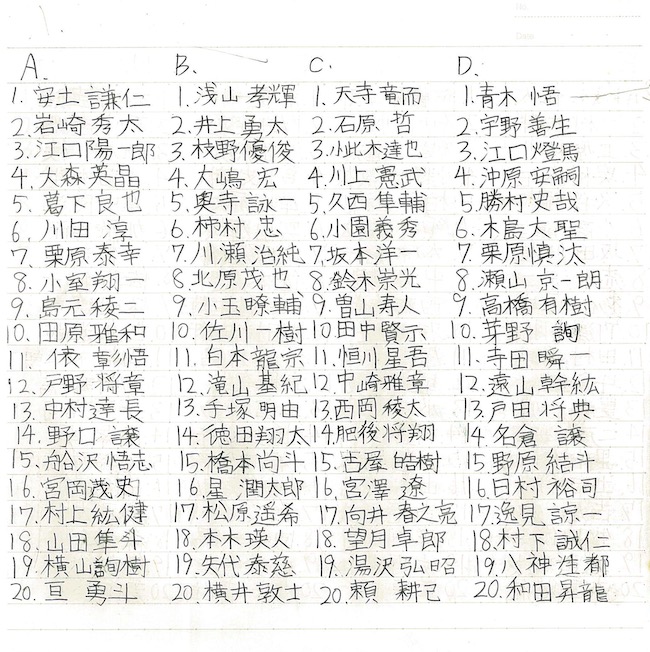 No.
Date
A.
1. 安土 謙仁
2. 岩崎 秀太
3. 江口 陽一郎
4. 大森 英晶
5. 葛下 良也
6. 川田 淳
7. 栗原 泰幸
8. 小室 翔一
9. 島元 稜二
10. 田原 雅和
11. 俵 彰悟
12. 戸野 将章
13. 中村 達長
14. 野口 譲
15. 船沢 悟志
16. 宮岡 茂史
17. 村上 紘健
18. 山田 隼斗
19. 横山 詢樹
20. 亘 勇斗
B.
1. 浅山 孝輝
2. 井上 勇太
3. 枝野 優俊
4. 大嶋 宏
5. 奥寺 詠一
6. 柿村 忠
7. 川瀬 治純
8. 北原 茂也
9. 小玉 暸輔
10. 佐川 一樹
11. 白本 龍宗
12. 滝山 基紀
13. 手塚 明由
14. 徳田 翔太
15. 橋本 尚斗
16. 星 潤太郎
17. 松原 遥希
18. 本木 瑛人
19. 矢代 泰慈
20. 横井 敦士
C.
1. 天寺 竜而
2. 石原 哲
3. 小此木 達也
4. 川上 憲武
5. 久西 隼輔
6. 小園 義秀
7. 坂本 洋一
8. 鈴木 崇光
9. 曽山 寿人
10. 田中 賢示
11. 恒川 星吾
12. 中崎 雅章
13. 西岡 稜太
14. 肥後 将翔
15. 古屋 皓樹
16. 宮澤 遼
17. 向井 春之亮
18. 望月 卓郎
19. 湯沢 弘昭
20. 頼 耕己
D.
1. 青木 悟
2. 宇野 善生
3. 江口 燈馬
4. 沖原 安嗣
5. 勝村 史哉
6. 木島 大聖
7. 栗原 慎汰
8. 瀬山 京一朗
9. 高橋 有樹
10. 芽野 詢
11. 寺田 瞬一
12. 遠山 幹紘
13. 戸田 将典
14. 名倉 譲
15. 野原 結斗
16. 日村 裕司
17. 逸見 諒一
18. 村下 誠仁
19. 八神 洼都
20. 和田 昇龍